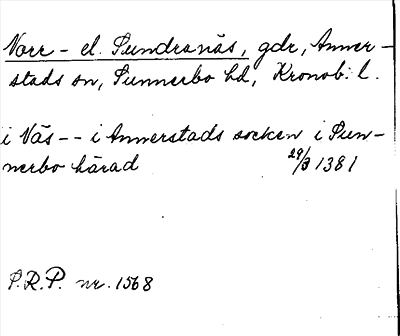 Norr- el. Sundranäs, gdr, Anner-
stads sn, Sunnerbo hd, Kronob. l.
i Näs -- i Annerstads socken i Sun-
nerbo härad 29/8 1381
P.R.P. nr. 1568